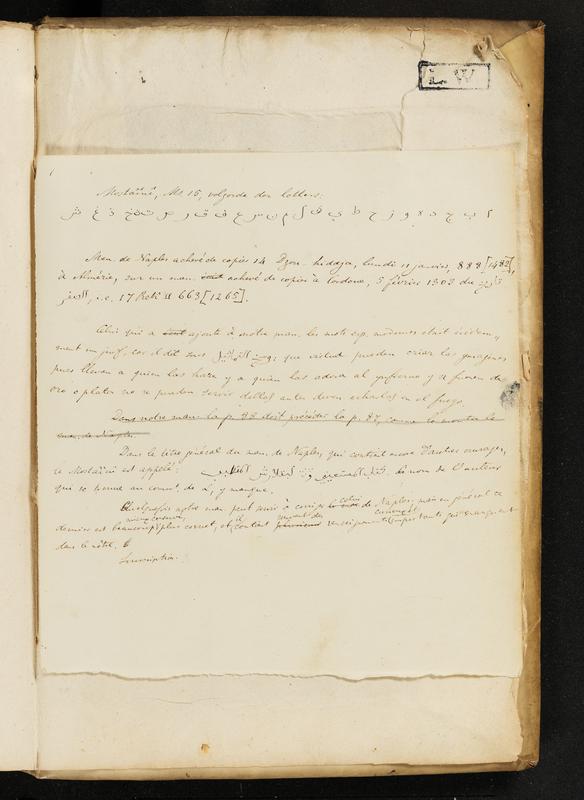 L. W.
Mostaïnî, Ms 15, volgorde der letters:
ا ب ج د ه و ز ح ط ي ك ل م ن س ع ف ق ر ش ت ث خ ذ غ ش
Man. de Naples achevé de copier 14 Dzou-hiddja, lundi 11 janvier, 888 [1483],
à Almérie, sur un man. achevé de copier à Cordoue, 5 février 1303 du تاريخ
الصفر, i.e. 17 Rebî II 663 [1265].
Celui qui a ajouté à notre man. les mots esp. modernes était évidem-
ment un juif, car il dit sous : que virtud pueden criar las ymagenes
pues llevan a quien las haze y a quien las adora al ynfierno y si fueren de
oro o plata no se pueden servir dellas antes deven echarlas en el fuego.
Dans notre man. la p. 88 doit précéder la p. 87, comme le montre le
man. de Naples.
Dans le titre général du man. de Naples, qui contient encore d'autres ouvrages,
le Mostaïnî est appelé: كتاب المستعيني ; le nom de l'auteur
qui se trouve au commt. de L, y manque.
Quelquefois notre man. peut servir à corriger celui de Naples; mais en général ce
dernier est beaucoup plus correct, et il contient renseignements importants qui manquent
dans le nôtre.
Souscription.